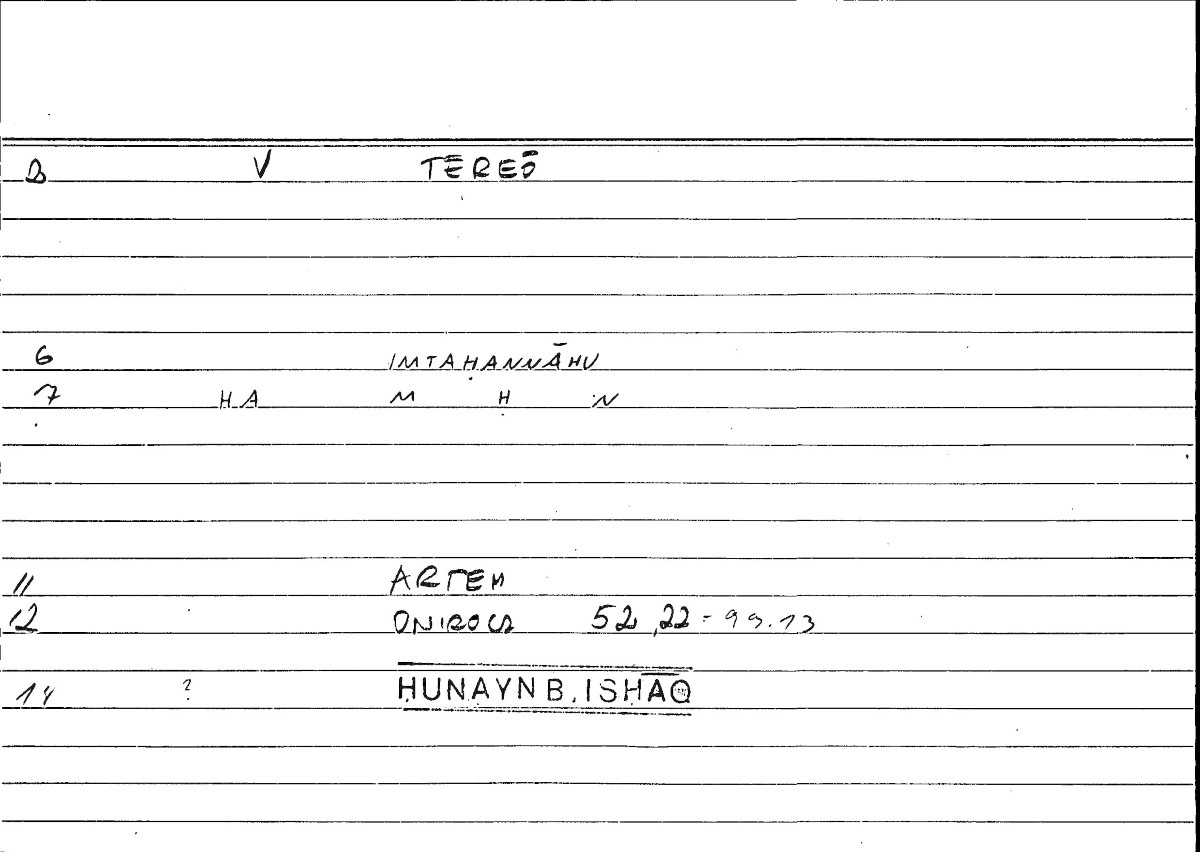 B V TĒREŌ
6 IMTAḤANNĀHU
7 HA M Ḥ N
11 ARTEM
12 ONIROCR 52,22-99.13
14 ? ḤUNAYN B. ISḤĀQ